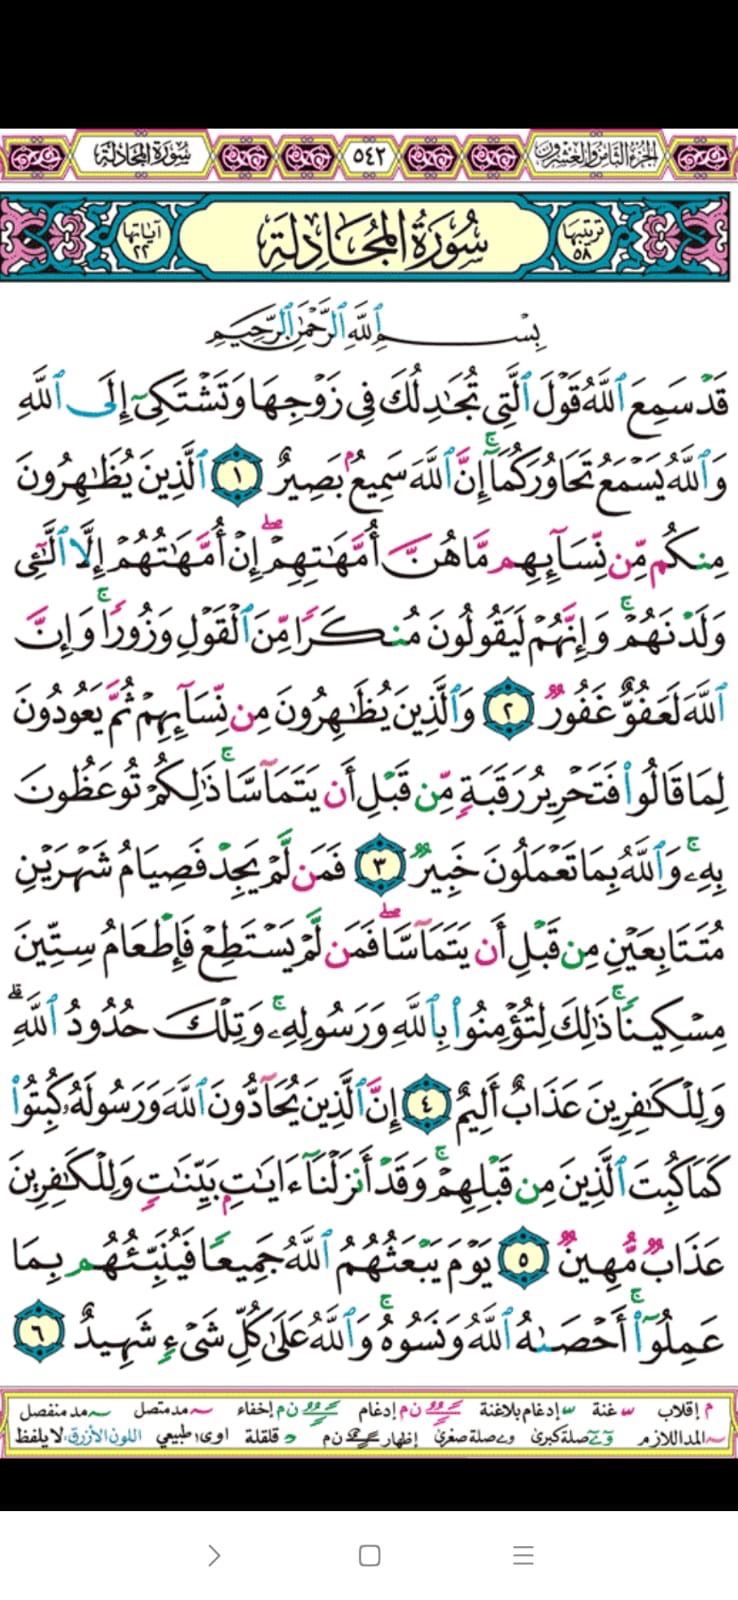 الجزء الثامن والعشرون ٥٤٢ سورة المجادلة
ترتيبها ٥٨ سُورَةُ المُجَادِلَةِ آياتها ٢٢
بِسْمِ ٱللَّهِ ٱلرَّحْمَٰنِ ٱلرَّحِيمِ
قَدْ سَمِعَ ٱللَّهُ قَوْلَ ٱلَّتِي تُجَٰدِلُكَ فِي زَوْجِهَا وَتَشْتَكِيٓ إِلَى ٱللَّهِ
وَٱللَّهُ يَسْمَعُ تَحَاوُرَكُمَآۚ إِنَّ ٱللَّهَ سَمِيعُۢ بَصِيرٌ ١ ٱلَّذِينَ يُظَٰهِرُونَ
مِنكُم مِّن نِّسَآئِهِم مَّا هُنَّ أُمَّهَٰتِهِمْۖ إِنْ أُمَّهَٰتُهُمْ إِلَّا ٱلَّٰٓـِٔي
وَلَدْنَهُمْۚ وَإِنَّهُمْ لَيَقُولُونَ مُنكَرًا مِّنَ ٱلْقَوْلِ وَزُورًاۚ وَإِنَّ
ٱللَّهَ لَعَفُوٌّ غَفُورٌ ٢ وَٱلَّذِينَ يُظَٰهِرُونَ مِن نِّسَآئِهِمْ ثُمَّ يَعُودُونَ
لِمَا قَالُوا۟ فَتَحْرِيرُ رَقَبَةٍ مِّن قَبْلِ أَن يَتَمَآسَّاۚ ذَٰلِكُمْ تُوعَظُونَ
بِهِۦۚ وَٱللَّهُ بِمَا تَعْمَلُونَ خَبِيرٌ ٣ فَمَن لَّمْ يَجِدْ فَصِيَامُ شَهْرَيْنِ
مُتَتَابِعَيْنِ مِن قَبْلِ أَن يَتَمَآسَّاۖ فَمَن لَّمْ يَسْتَطِعْ فَإِطْعَامُ سِتِّينَ
مِسْكِينًاۚ ذَٰلِكَ لِتُؤْمِنُوا۟ بِٱللَّهِ وَرَسُولِهِۦۚ وَتِلْكَ حُدُودُ ٱللَّهِۗ
وَلِلْكَٰفِرِينَ عَذَابٌ أَلِيمٌ ٤ إِنَّ ٱلَّذِينَ يُحَآدُّونَ ٱللَّهَ وَرَسُولَهُۥ كُبِتُوا۟
كَمَا كُبِتَ ٱلَّذِينَ مِن قَبْلِهِمْۚ وَقَدْ أَنزَلْنَآ ءَايَٰتٍۭ بَيِّنَٰتٍۚ وَلِلْكَٰفِرِينَ
عَذَابٌ مُّهِينٌ ٥ يَوْمَ يَبْعَثُهُمُ ٱللَّهُ جَمِيعًا فَيُنَبِّئُهُم بِمَا
عَمِلُوٓا۟ۚ أَحْصَىٰهُ ٱللَّهُ وَنَسُوهُۚ وَٱللَّهُ عَلَىٰ كُلِّ شَيْءٍ شَهِيدٌ ٦
م إقلاب غنة إدغام بلاغنة ن م إدغام ن م إخفاء مد متصل مد منفصل
المد اللازم صلة كبرى و ے صلة صغرى إظهار ن م قلقلة ا و ى طبيعي اللون الأزرق: لا يلفظ